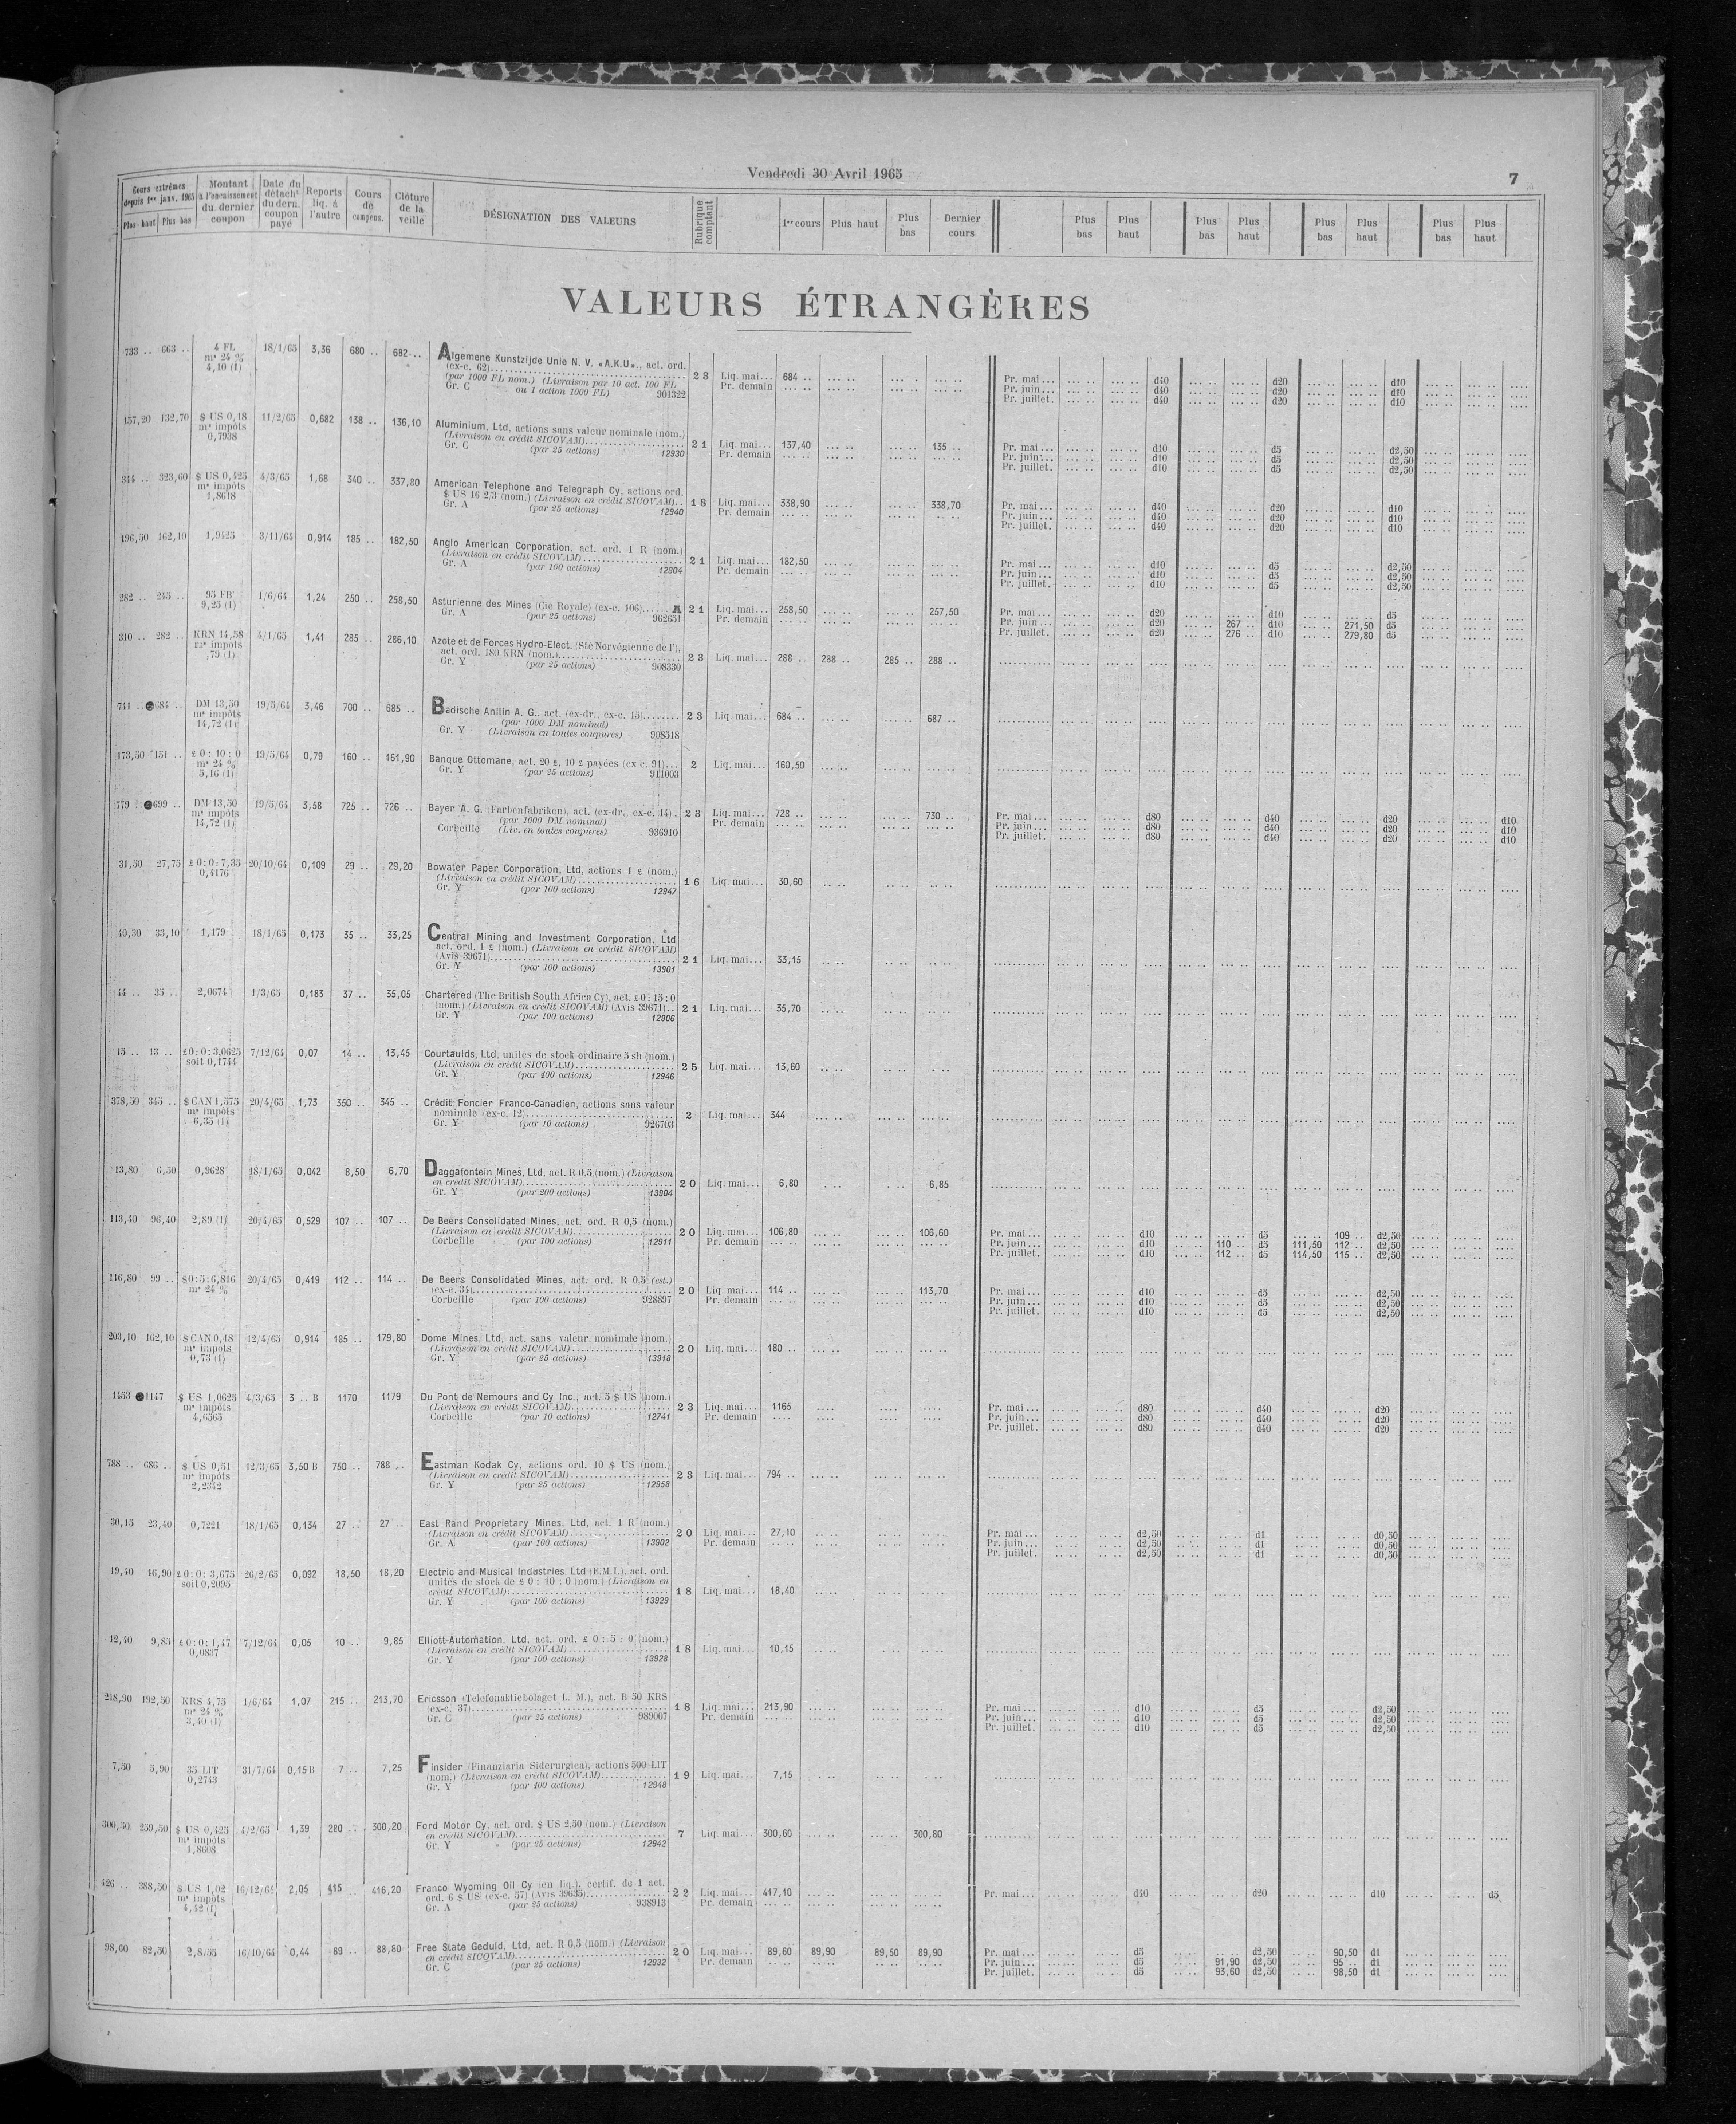 Vendredi 30 Avril 1965
7
Cours extrêmes depuis 1er janv. 1965 Plus haut Plus bas
Montant à l'encaissement du dernier coupon
Date du détacht du dern. coupon payé
Reports liq. à l'autre
Cours de compens.
Clôture de la veille
DÉSIGNATION DES VALEURS
Rubrique comptant
1er cours Plus haut Plus bas Dernier cours
Plus bas Plus haut Plus bas Plus haut Plus bas Plus haut Plus bas Plus haut
VALEURS ÉTRANGÈRES
733 .. 663 .. 4 FL 18/1/65 3,36 680 .. 682 .. Algemene Kunstzijde Unie N. V. «A.K.U»., act. ord.
me 24 % (ex-c. 62)
4,10 (1) (par 1000 FL nom.) (Livraison par 10 act. 100 FL 23 Liq. mai... 684 .. Pr. mai... d40 d20 d10
Gr. C ou 1 action 1000 FL) 901322 Pr. demain Pr. juin... d40 d20 d10
Pr. juillet. d40 d20 d10
157,20 132,70 $ US 0,18 11/2/65 0,682 138 .. 136,10 Aluminium, Ltd, actions sans valeur nominale (nom.)
me impôts (Livraison en crédit SICOVAM) 21 Liq. mai... 137,40 135 .. Pr. mai... d10 d5 d2,50
0,7938 Gr. C (par 25 actions) 12930 Pr. demain Pr. juin... d10 d5 d2,50
Pr. juillet. d10 d5 d2,50
344 .. 323,60 $ US 0,425 4/3/65 1,68 340 .. 337,80 American Telephone and Telegraph Cy, actions ord.
me impôts $ US 16 2/3 (nom.) (Livraison en crédit SICOVAM).. 18 Liq. mai... 338,90 338,70 Pr. mai... d40 d20 d10
1,8618 Gr. A (par 25 actions) 12940 Pr. demain Pr. juin... d40 d20 d10
Pr. juillet. d40 d20 d10
196,50 162,10 1,9425 3/11/64 0,914 185 .. 182,50 Anglo American Corporation, act. ord. 1 R (nom.)
(Livraison en crédit SICOVAM) 21 Liq. mai... 182,50 Pr. mai... d10 d5 d2,50
Gr. A (par 100 actions) 12904 Pr. demain Pr. juin... d10 d5 d2,50
Pr. juillet. d10 d5 d2,50
282 .. 245 .. 95 FB 1/6/64 1,24 250 .. 258,50 Asturienne des Mines (Cie Royale) (ex-c. 106)...... A 21 Liq. mai... 258,50 257,50 Pr. mai... d20 d10 d5
9,25 (1) Gr. A (par 25 actions) 962651 Pr. demain Pr. juin... d20 267 .. d10 271,50 d5
Pr. juillet. d20 276 .. d10 279,80 d5
310 .. 282 .. KRN 14,58 4/1/65 1,41 285 .. 286,10 Azote et de Forces Hydro-Elect. (Ste Norvégienne de l'),
me impôts act. ord. 180 KRN (nom.) 23 Liq. mai... 288 .. 288 .. 285 .. 288 ..
,79 (1) Gr. Y (par 25 actions) 908330
741 .. 684 .. DM 13,50 19/5/64 3,46 700 .. 685 .. Badische Anilin A. G., act. (ex-dr., ex-c. 15) 23 Liq. mai... 684 .. 687 ..
me impôts (par 1000 DM nominal)
14,72 (1) Gr. Y (Livraison en toutes coupures) 908518
173,50 151 .. £ 0 : 10 : 0 19/5/64 0,79 160 .. 161,90 Banque Ottomane, act. 20 £, 10 £ payées (ex c. 91)... 2 Liq. mai... 160,50
me 24 % Gr. Y (par 25 actions) 911003
5,16 (1)
779 .. 699 .. DM 13,50 19/5/64 3,58 725 .. 726 .. Bayer A. G. (Farbenfabriken), act. (ex-dr., ex-c. 14). 23 Liq. mai... 728 .. 730 .. Pr. mai... d80 d40 d20 d10
me impôts (par 1000 DM nominal) Pr. demain Pr. juin... d80 d40 d20 d10
14,72 (1) Corbeille (Liv. en toutes coupures) 936910 Pr. juillet. d80 d40 d20 d10
31,50 27,75 £ 0:0:7,35 20/10/64 0,109 29 .. 29,20 Bowater Paper Corporation, Ltd, actions 1 £ (nom.)
0,4176 (Livraison en crédit SICOVAM) 16 Liq. mai... 30,60
Gr. Y (par 100 actions) 12947
40,30 33,10 1,179 18/1/65 0,173 35 .. 33,25 Central Mining and Investment Corporation, Ltd
act. ord. 1 £ (nom.) (Livraison en crédit SICOVAM)
(Avis 39671) 21 Liq. mai... 33,15
Gr. Y (par 100 actions) 13901
44 .. 35 .. 2,0674 1/3/65 0,183 37 .. 35,05 Chartered (The British South Africa Cy), act. £ 0 : 15 : 0
(nom.) (Livraison en crédit SICOVAM) (Avis 39671).. 21 Liq. mai... 35,70
Gr. Y (par 100 actions) 12906
15 .. 13 .. £0:0:3,0625 7/12/64 0,07 14 .. 13,45 Courtaulds, Ltd, unités de stock ordinaire 5 sh (nom.)
soit 0,1744 (Livraison en crédit SICOVAM) 25 Liq. mai... 13,60
Gr. Y (par 400 actions) 12946
378,50 345 .. $ CAN 1,575 20/4/65 1,73 350 .. 345 .. Crédit Foncier Franco-Canadien, actions sans valeur
me impôts nominale (ex-c. 12) 2 Liq. mai... 344
6,35 (1) Gr. Y (par 10 actions) 926703
13,80 6,50 0,9628 18/1/65 0,042 8,50 6,70 Daggafontein Mines, Ltd, act. R 0,5 (nom.) (Livraison
en crédit SICOVAM) 20 Liq. mai... 6,80 6,85
Gr. Y (par 200 actions) 13904
113,40 96,40 2,89 (1) 20/4/65 0,529 107 .. 107 .. De Beers Consolidated Mines, act. ord. R 0,5 (nom.)
(Livraison en crédit SICOVAM) 20 Liq. mai... 106,80 106,60 Pr. mai... d10 d5 109 .. d2,50
Corbeille (par 100 actions) 12911 Pr. demain Pr. juin... d10 110 .. d5 111,50 112 .. d2,50
Pr. juillet. d10 112 .. d5 114,50 115 .. d2,50
116,80 99 .. $0:5:6,816 20/4/65 0,419 112 .. 114 .. De Beers Consolidated Mines, act. ord. R 0,5 (est.)
me 24 % (ex-c. 34) 20 Liq. mai... 114 .. 113,70 Pr. mai... d10 d5 d2,50
Corbeille (par 100 actions) 928897 Pr. demain Pr. juin... d10 d5 d2,50
Pr. juillet. d10 d5 d2,50
203,10 162,10 $ CAN 0,18 12/4/65 0,914 185 .. 179,80 Dome Mines, Ltd, act. sans valeur nominale (nom.)
me impôts (Livraison en crédit SICOVAM) 20 Liq. mai... 180 ..
0,73 (1) Gr. Y (par 25 actions) 13918
1453 1147 $ US 1,0625 4/3/65 3 .. B 1170 1179 Du Pont de Nemours and Cy Inc., act. 5 $ US (nom.)
me impôts (Livraison en crédit SICOVAM) 23 Liq. mai... 1165 Pr. mai... d80 d40 d20
4,6565 Corbeille (par 10 actions) 12741 Pr. demain Pr. juin... d80 d40 d20
Pr. juillet. d80 d40 d20
788 .. 686 .. $ US 0,51 12/3/65 3,50 B 750 .. 788 .. Eastman Kodak Cy, actions ord. 10 $ US (nom.)
me impôts (Livraison en crédit SICOVAM) 23 Liq. mai... 794 ..
2,2342 Gr. Y (par 25 actions) 12958
30,15 23,40 0,7221 18/1/65 0,134 27 .. 27 .. East Rand Proprietary Mines, Ltd, act. 1 R (nom.)
(Livraison en crédit SICOVAM) 20 Liq. mai... 27,10 Pr. mai... d2,50 d1 d0,50
Gr. A (par 100 actions) 13902 Pr. demain Pr. juin... d2,50 d1 d0,50
Pr. juillet. d2,50 d1 d0,50
19,40 16,90 £ 0:0: 3,675 26/2/65 0,092 18,50 18,20 Electric and Musical Industries, Ltd (E.M.I.), act. ord.
soit 0,2095 unités de stock de £ 0 : 10 : 0 (nom.) (Livraison en
crédit SICOVAM) 18 Liq. mai... 18,40
Gr. Y (par 100 actions) 13929
12,40 9,85 £ 0:0: 1,47 7/12/64 0,05 10 .. 9,85 Elliott-Automation, Ltd, act. ord. £ 0 : 5 : 0 (nom.)
0,0837 (Livraison en crédit SICOVAM) 18 Liq. mai... 10,15
Gr. Y (par 100 actions) 13928
218,90 192,50 KRS 4,75 1/6/64 1,07 215 .. 213,70 Ericsson (Telefonaktiebolaget L. M.), act. B 50 KRS
me 24 % (ex-c. 37) 18 Liq. mai... 213,90 Pr. mai... d10 d5 d2,50
3,40 (1) Gr. C (par 25 actions) 989007 Pr. demain Pr. juin... d10 d5 d2,50
Pr. juillet. d10 d5 d2,50
7,50 5,90 35 LIT 31/7/64 0,15 B 7 .. 7,25 Finsider (Finanziaria Siderurgica), actions 500 LIT
0,2743 (nom.) (Livraison en crédit SICOVAM) 19 Liq. mai... 7,15
Gr. Y (par 400 actions) 12948
300,50 259,50 $ US 0,425 4/2/65 1,39 280 .. 300,20 Ford Motor Cy, act. ord. $ US 2,50 (nom.) (Livraison
me impôts en crédit SICOVAM) 7 Liq. mai... 300,60 300,80
1,8608 Gr. Y (par 25 actions) 12942
426 .. 388,50 $ US 1,02 16/12/64 2,05 415 .. 416,20 Franco Wyoming Oil Cy (en liq.), certif. de 1 act.
me impôts ord. 6 $ US (ex-c. 57) (Avis 39635) 22 Liq. mai... 417,10 Pr. mai... d40 d20 d10 d5
4,42 (1) Gr. A (par 25 actions) 938913 Pr. demain
98,60 82,50 16/10/64 0,44 89 .. 88,80 Free State Geduld, Ltd, act. R 0,5 (nom.) (Livraison
en crédit SICOVAM) 20 Liq. mai... 89,60 89,90 89,50 89,90 Pr. mai... d5 d2,50 90,50 d1
Gr. C (par 25 actions) 12932 Pr. demain Pr. juin... d5 91,90 d2,50 95 .. d1
Pr. juillet. d5 93,60 d2,50 98,50 d1